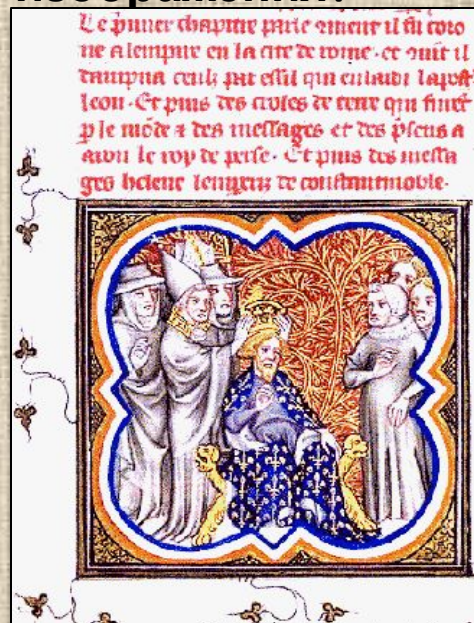 Le p̃mier chapitre parle cment il fu coro
ne a lempire en la cite de rome · et cment il
dampna ceulz par essil qui enlaidi lapos
leon · Et puis des de terre qui furet
p le mõde ⁊ des messages et des p̃sens a
aron le roy de perse · Et puis des messa
ges helene lemperis de constantinoble ·